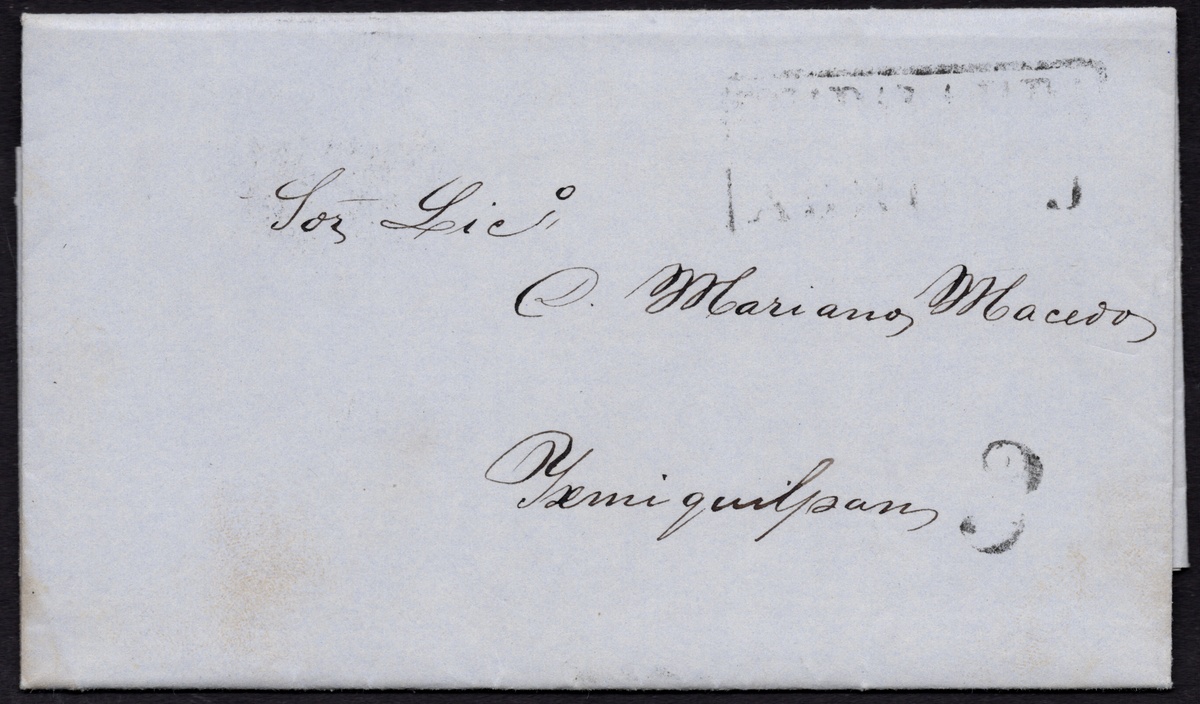 Sor Lic.º
C. Mariano Macedo
Yxmiquilpan
3